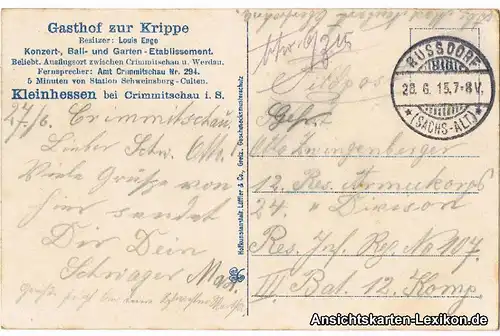 Gasthof zur Krippe
Besitzer: Louis Enge
Konzert-, Ball- und Garten-Etablissement.
Beliebt. Ausflugsort zwischen Crimmitschau u. Werdau.
Fernsprecher: Amt Crimmitschau Nr. 294.
5 Minuten von Station Schweinsburg-Culten.
Kleinhessen bei Crimmitschau i. S.
27/6. Crimmitschau.
Lieber Schw. Otto!
Viele Grüße von
hier sendet
Dir Dein
Schwager Max.
Hofkunstanstalt Löffler & Co., Greiz. Geschmacksmusterschutz
RUSSDORF
28.6.15.7-8V.
*(SACHS-ALT.)*
Feldpost
Gefr.
Otto Zwingenberger
12. Res. Armeekorps
24. " Division
Res. Inf. Reg. No 107
III. Bat. 12. Komp.
Ansichtskarten-Lexikon.de